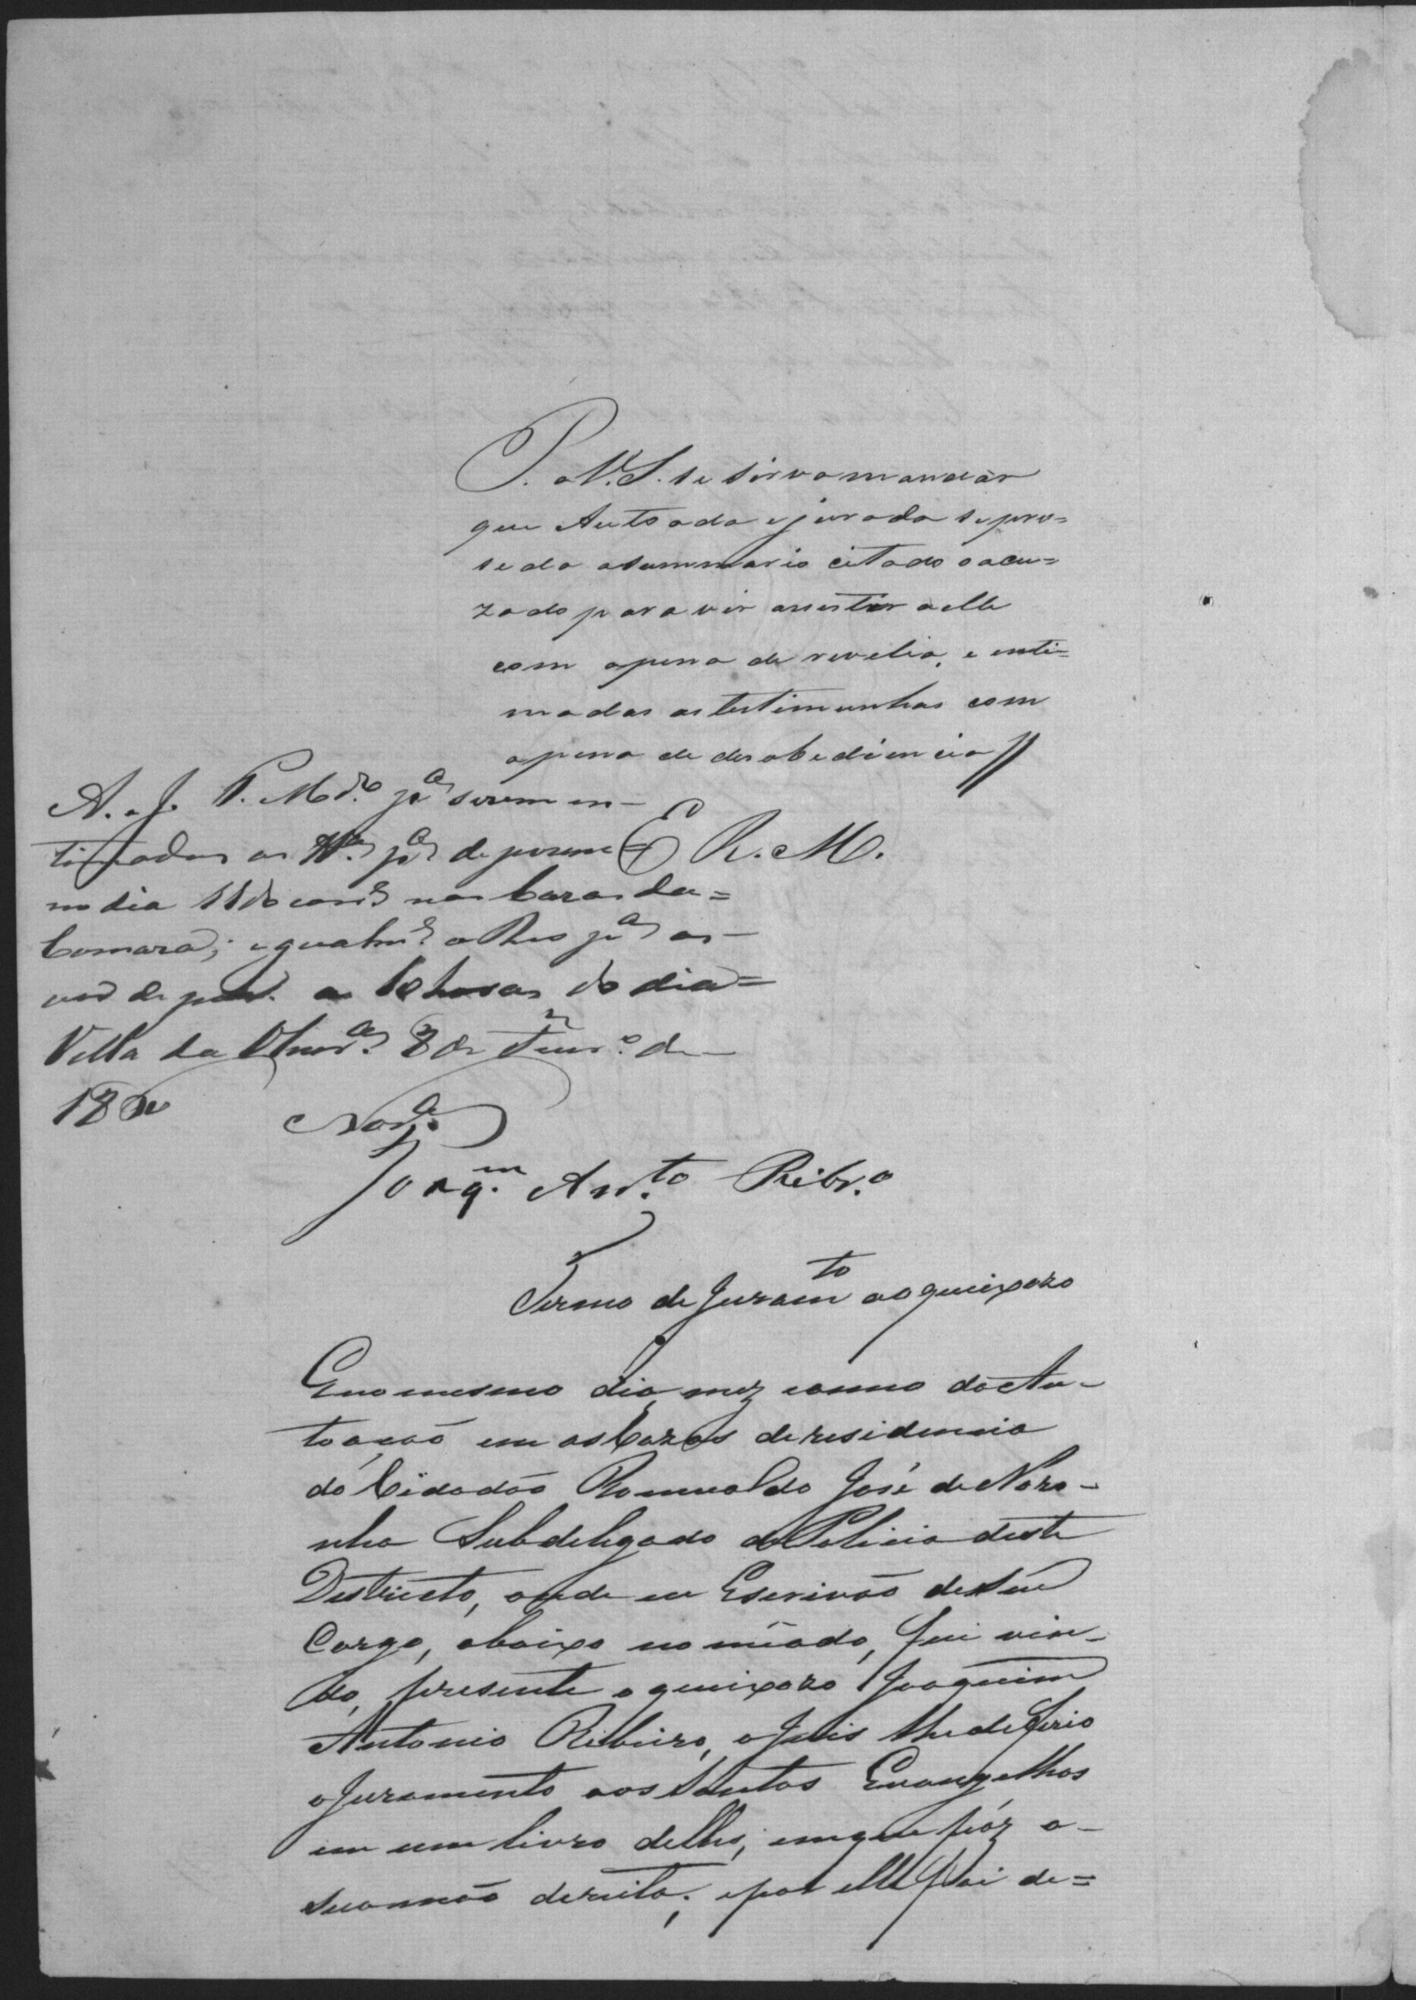 P. a V. S. se sirva mandar
que Autoada e jurada se pro=
seda a summario citado o acu=
zado para vir assistir a elle
com a pena de revelia, e enti=
madas as testimunhas com
a pena de desobediencia //
E R. M.
A. e J. P. Mdo. pa. serem in-
timadas as pa. deporem
no dia 11 do corre. nas Cazas da=
Camara; e igualme. o Reo pa. as-
a 10 horas do dia=
Villa da 8 de de-
Norа.
Joaqm. Anto. Ribro.
Termo de Juramto ao queixozo
E no mesmo dia, mez e anno da Au-
toação em as Cazas de residencia
do Cidadão Romualdo José de Noro-
nha Subdelegado de Policia deste
Districto, onde eu Escrivão de seu
Cargo, abaixo nomiado, fui vin-
do, presente o queixozo Joaquim
Antonio Ribeiro, o Juis lhe deferio
o Juramento aos Santos Evangelhos
em um livro delles; em que póz a-
sua mão direita; e por elle foi de=